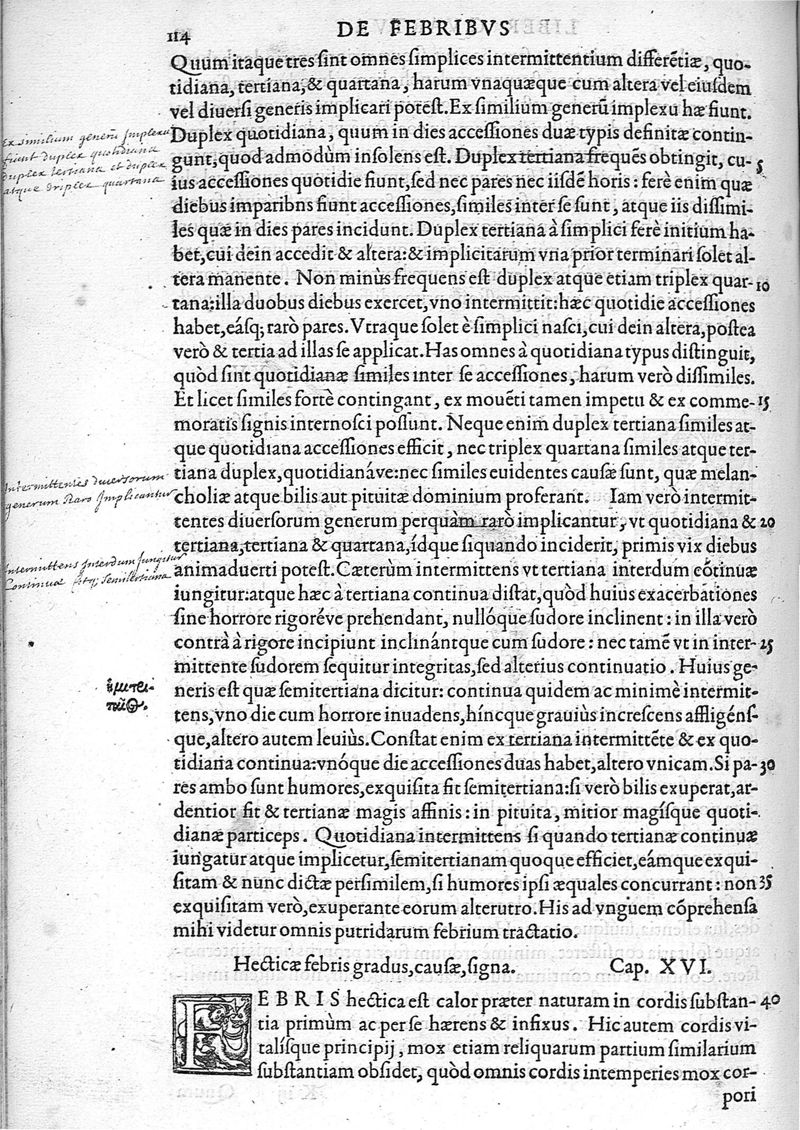 114
DE FEBRIBVS
Quum itaque tres sint omnes simplices intermittentium differẽtiæ, quo-
tidiana, tertiana, & quartana, harum vnaquæque cum altera vel eiusdem
vel diuersi generis implicari potest. Ex similium generũ implexu hæ fiunt.
Duplex quotidiana, quum in dies accessiones duæ typis definitæ contin-
gunt, quod admodùm insolens est. Duplex tertiana frequẽs obtingit, cu- 5
ius accessiones quotidie fiunt, sed nec pares nec iisdẽ horis: ferè enim quæ
diebus imparibns fiunt accessiones, similes inter se sunt, atque iis dissimi-
les quæ in dies pares incidunt. Duplex tertiana à simplici ferè initium ha-
bet, cui dein accedit & altera: & implicitarum vna prior terminari solet al-
tera manente. Non minùs frequens est duplex atque etiam triplex quar- 10
tana: illa duobus diebus exercet, vno intermittit: hæc quotidie accessiones
habet, eásq; rarò pares. Vtraque solet è simplici nasci, cui dein altera, postea
verò & tertia ad illas se applicat. Has omnes à quotidiana typus distinguit,
quòd sint quotidianæ similes inter se accessiones, harum verò dissimiles.
Et licet similes fortè contingant, ex mouẽti tamen impetu & ex comme- 15
moratis signis internosci possunt. Neque enim duplex tertiana similes at-
que quotidiana accessiones efficit, nec triplex quartana similes atque ter-
tiana duplex, quotidianáve: nec similes euidentes causæ sunt, quæ melan-
choliæ atque bilis aut pituitæ dominium proferant. Iam verò intermit-
tentes diuersorum generum perquàm rarò implicantur, vt quotidiana & 20
tertiana, tertiana & quartana, ídque siquando inciderit, primis vix diebus
animaduerti potest. Cæterùm intermittens vt tertiana interdum cõtinuæ
iungitur: atque hæc à tertiana continua distat, quòd huius exacerbationes
sine horrore rigoréve prehendant, nullóque sudore inclinent: in illa verò
contrà à rigore incipiunt inclinántque cum sudore: nec tamẽ vt in inter- 25
mittente sudorem sequitur integritas, sed alterius continuatio. Huius ge-
neris est quæ semitertiana dicitur: continua quidem ac minimè intermit-
tens, vno die cum horrore inuadens, híncque grauiùs increscens affligéns-
que, altero autem leuiùs. Constat enim ex tertiana intermittẽte & ex quo-
tidiana continua: vnóque die accessiones duas habet, altero vnicam. Si pa- 30
res ambo sunt humores, exquisita fit semitertiana: si verò bilis exuperat, ar-
dentior fit & tertianæ magis affinis: in pituita, mitior magísque quoti-
dianæ particeps. Quotidiana intermittens si quando tertianæ continuæ
iungatur atque implicetur, semitertianam quoque efficiet, eámque exqui-
sitam & nunc dictæ persimilem, si humores ipsi æquales concurrant: non 35
exquisitam verò, exuperante eorum alterutro. His ad vnguem cõprehensa
mihi videtur omnis putridarum febrium tractatio.
Hecticæ febris gradus, causæ, signa. Cap. XVI.
FEBRIS hectica est calor præter naturam in cordis substan- 40
tia primùm ac per se hærens & infixus. Hic autem cordis vi-
talísque principij, mox etiam reliquarum partium similarium
substantiam obsidet, quòd omnis cordis intemperies mox cor-
pori
Ex similium generũ Implexu
fiunt duplex quotidiana
duplex tertiana et duplex
atque triplex quartana
Intermittentes diuersorum
generum Raro Implicantur
Intermittens Interdum Jungitur
Continuæ fitq; semitertiana